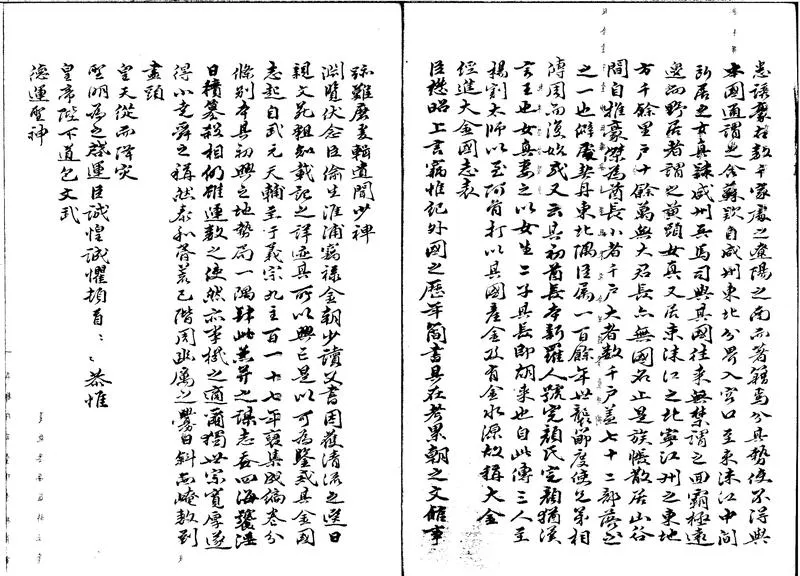 聚 數千家處之遼陽之南而著籍焉分其勢使不得與
本國通謂之合蘇欵自咸州東北分界入宮口至束沫江中間
所居之女真隸咸州兵馬司與其國往來無禁謂之回霸極遠
而野居者謂之黃頭女真又居束沫江之北寧江州之東地
方千餘里戶十餘萬無大君長亦無國名止是族帳散居山谷
間自推豪傑為酋長小者千戶大者數千戶蓋七十二部落
之一也僻處契丹東北隅臣屬一百餘年世襲節度使兄弟相
傳周而復始或又云其初酋長本新羅人號完顏氏完顏猶漢
言王也女真妻之以女生二子其長即胡來也自此傳三人至
楊割太師以至阿骨打以其國產金及有金水源故稱大金
經進大金國志表
臣懋昭上言竊惟記外國之歷年簡書具在考累朝之文館事
跡雖 更輒道聞少裨
淵覽伏念臣偷生淮浦竊祿金朝少讀父書因獲清流之選日
親文苑粗知載記之詳迹其所以興亡是以可為鑒戒其金國
志起自武元天輔至于義宗九主百一十七年裒集成編卷分
條別本其初興之地勢局一隅肆此 并之謀志吞四海
日積篡殺相仍雖運數之使然亦事機之適爾獨世宗寬厚遂
得小堯舜之稱然泰和 荒已階周幽厲之釁日斜 崦數到
盡頭
皇天從而降灾
聖明為之啓運臣誠惶誠懼頓首ミミ恭惟
皇帝陛下道包文武
德運聖神